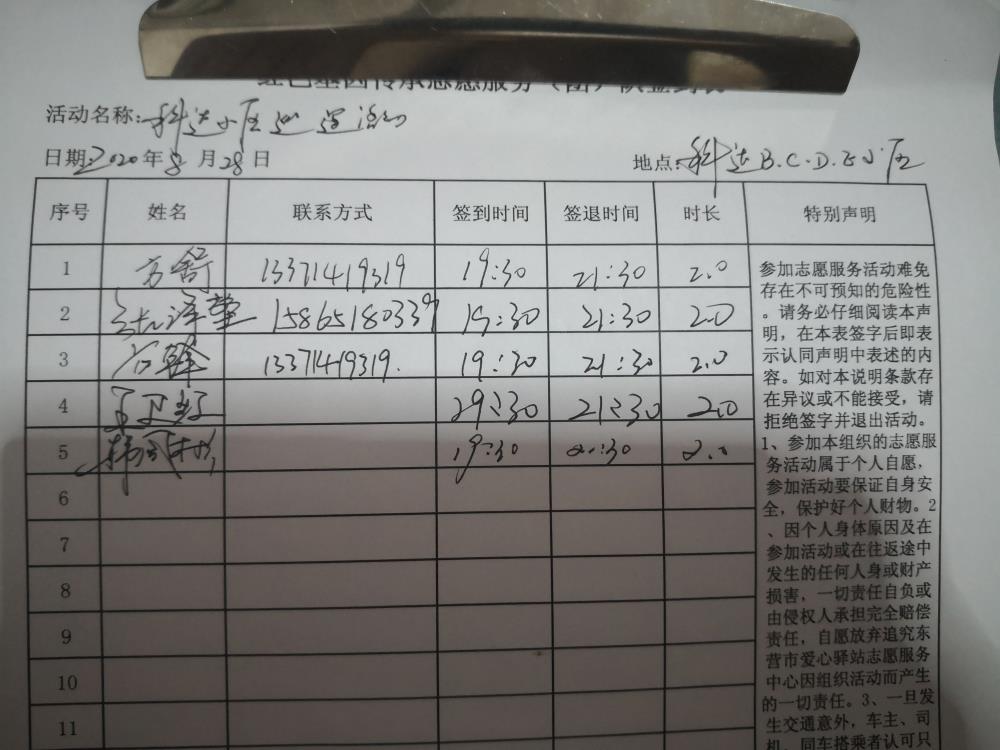 红色基因传承志愿服务（团）队签到表
活动名称：科达小区巡逻活动
日期：2020年8月28日 地点：科达B.C.D.E小区
序号 姓名 联系方式 签到时间 签退时间 时长 特别声明
1 方舒 13371419319 19:30 21:30 2.0
2 15865180339 19:30 21:30 2.0
3 13371419319. 19:30 21:30 2.0
4 19:30 21:30 2.0
5 19:30 21:30 2.0
6
7
8
9
10
11
参加志愿服务活动难免
存在不可预知的危险性
。请务必仔细阅读本声
明，在本表签字后即表
示认同声明中表述的内
容。如对本说明条款存
在异议或不能接受，请
拒绝签字并退出活动。
1、参加本组织的志愿服
务活动属于个人自愿，
参加活动要保证自身安
全，保护好个人财物。2
、因个人身体原因及在
参加活动或在往返途中
发生的任何人身或财产
损害，一切责任自负或
由侵权人承担完全赔偿
责任，自愿放弃追究东
营市爱心驿站志愿服务
中心因组织活动而产生
的一切责任。3、一旦发
生交通意外，车主、司
机、同车搭乘者认可只